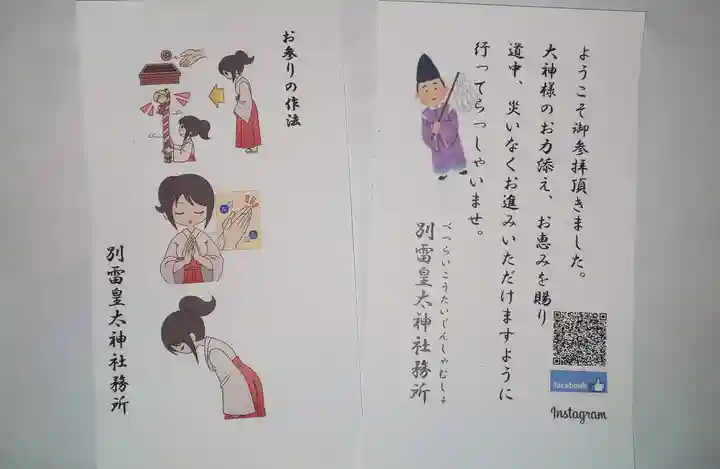 お参りの作法
別雷皇太神社務所
ようこそ御参拝頂きました。
大神様のお力添え、お恵みを賜り
道中、災いなくお進みいただけますように
行ってらっしゃいませ。
べつらいこうたいじんしゃむしょ
別雷皇太神社務所
facebook
Instagram